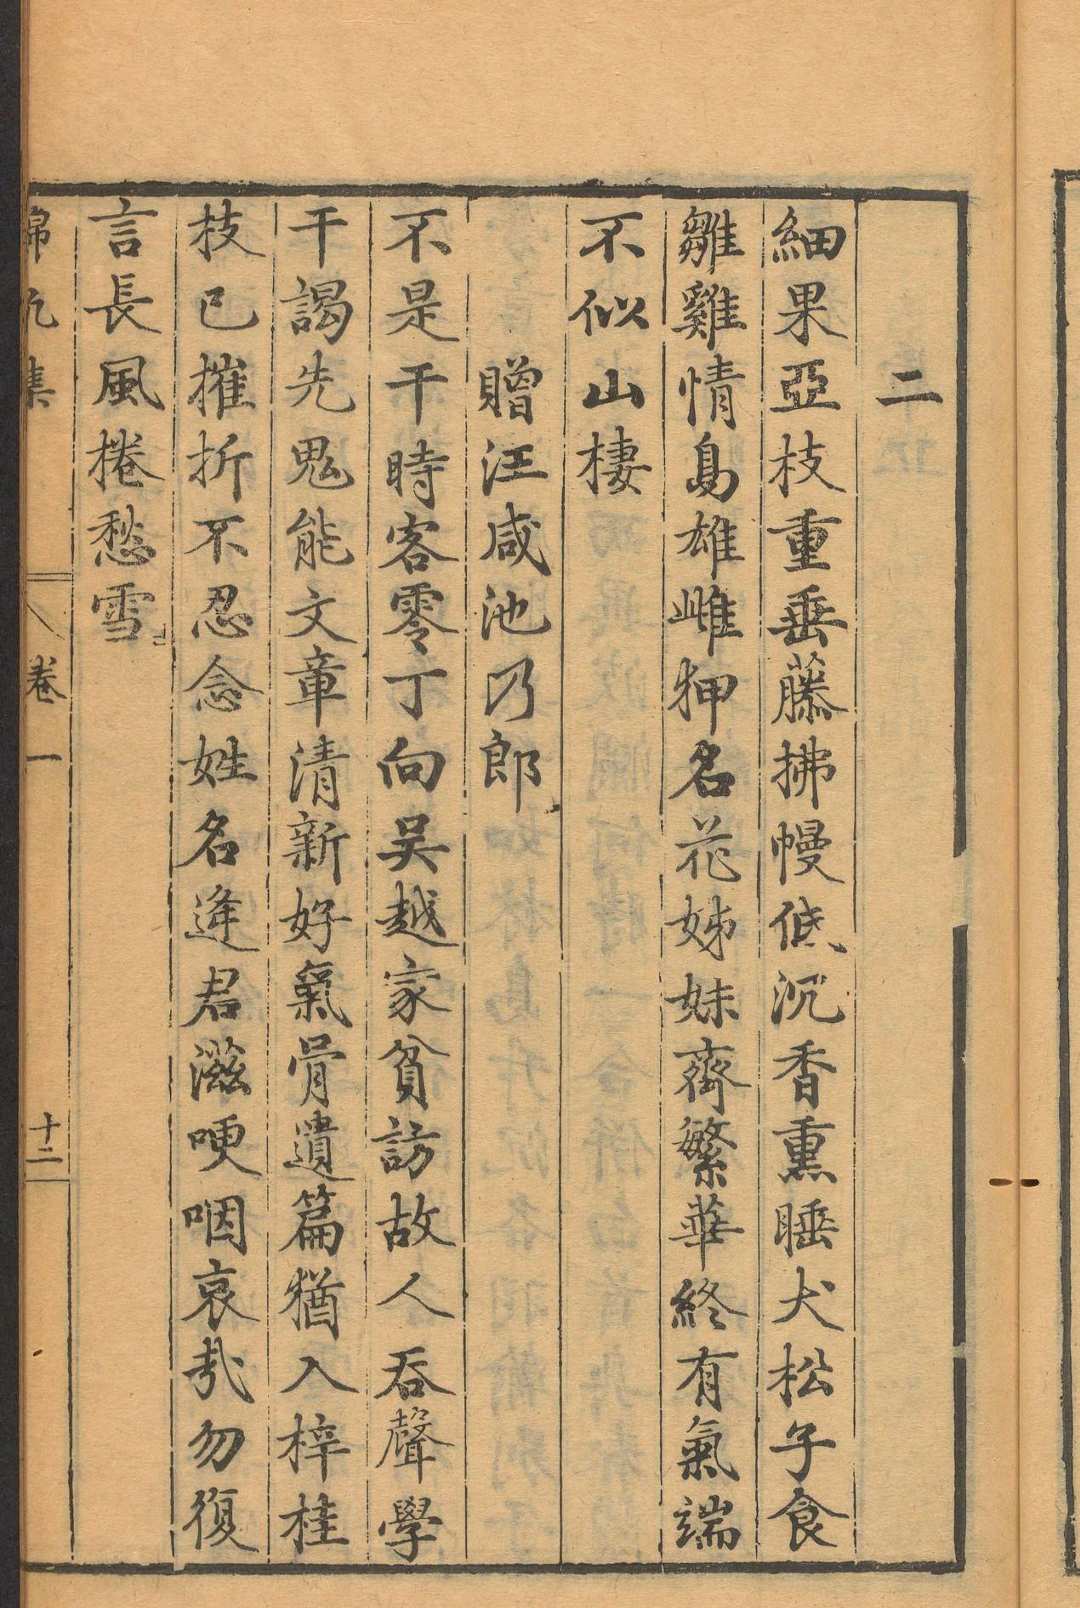 二
細果亞枝重垂藤拂幔低沉香熏睡犬松子食
雛雞情島雄雌狎名花姊妹齊繁華終有氣端
不似山棲
贈汪咸池乃郎
不是干時客零丁向吳越家貧訪故人吞聲學
干謁先鬼能文章清新好氣骨遺篇猶入梓桂
枝已摧折不忍念姓名逢君滋哽咽哀哉勿復
言長風捲愁雪
集 卷一 十二